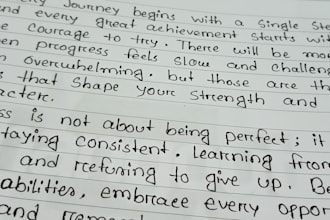 Journey begins with a single ste
and every great achievement starts wit
e courage to try. There will be mo
en progress feels slow and challen
overwhelming. but those are th
s that shape your strength and
acter.
ss is not about being perfect; it
taying consistent. Learning from
and refusing to give up. Be
abilities, embrace every oppor
and